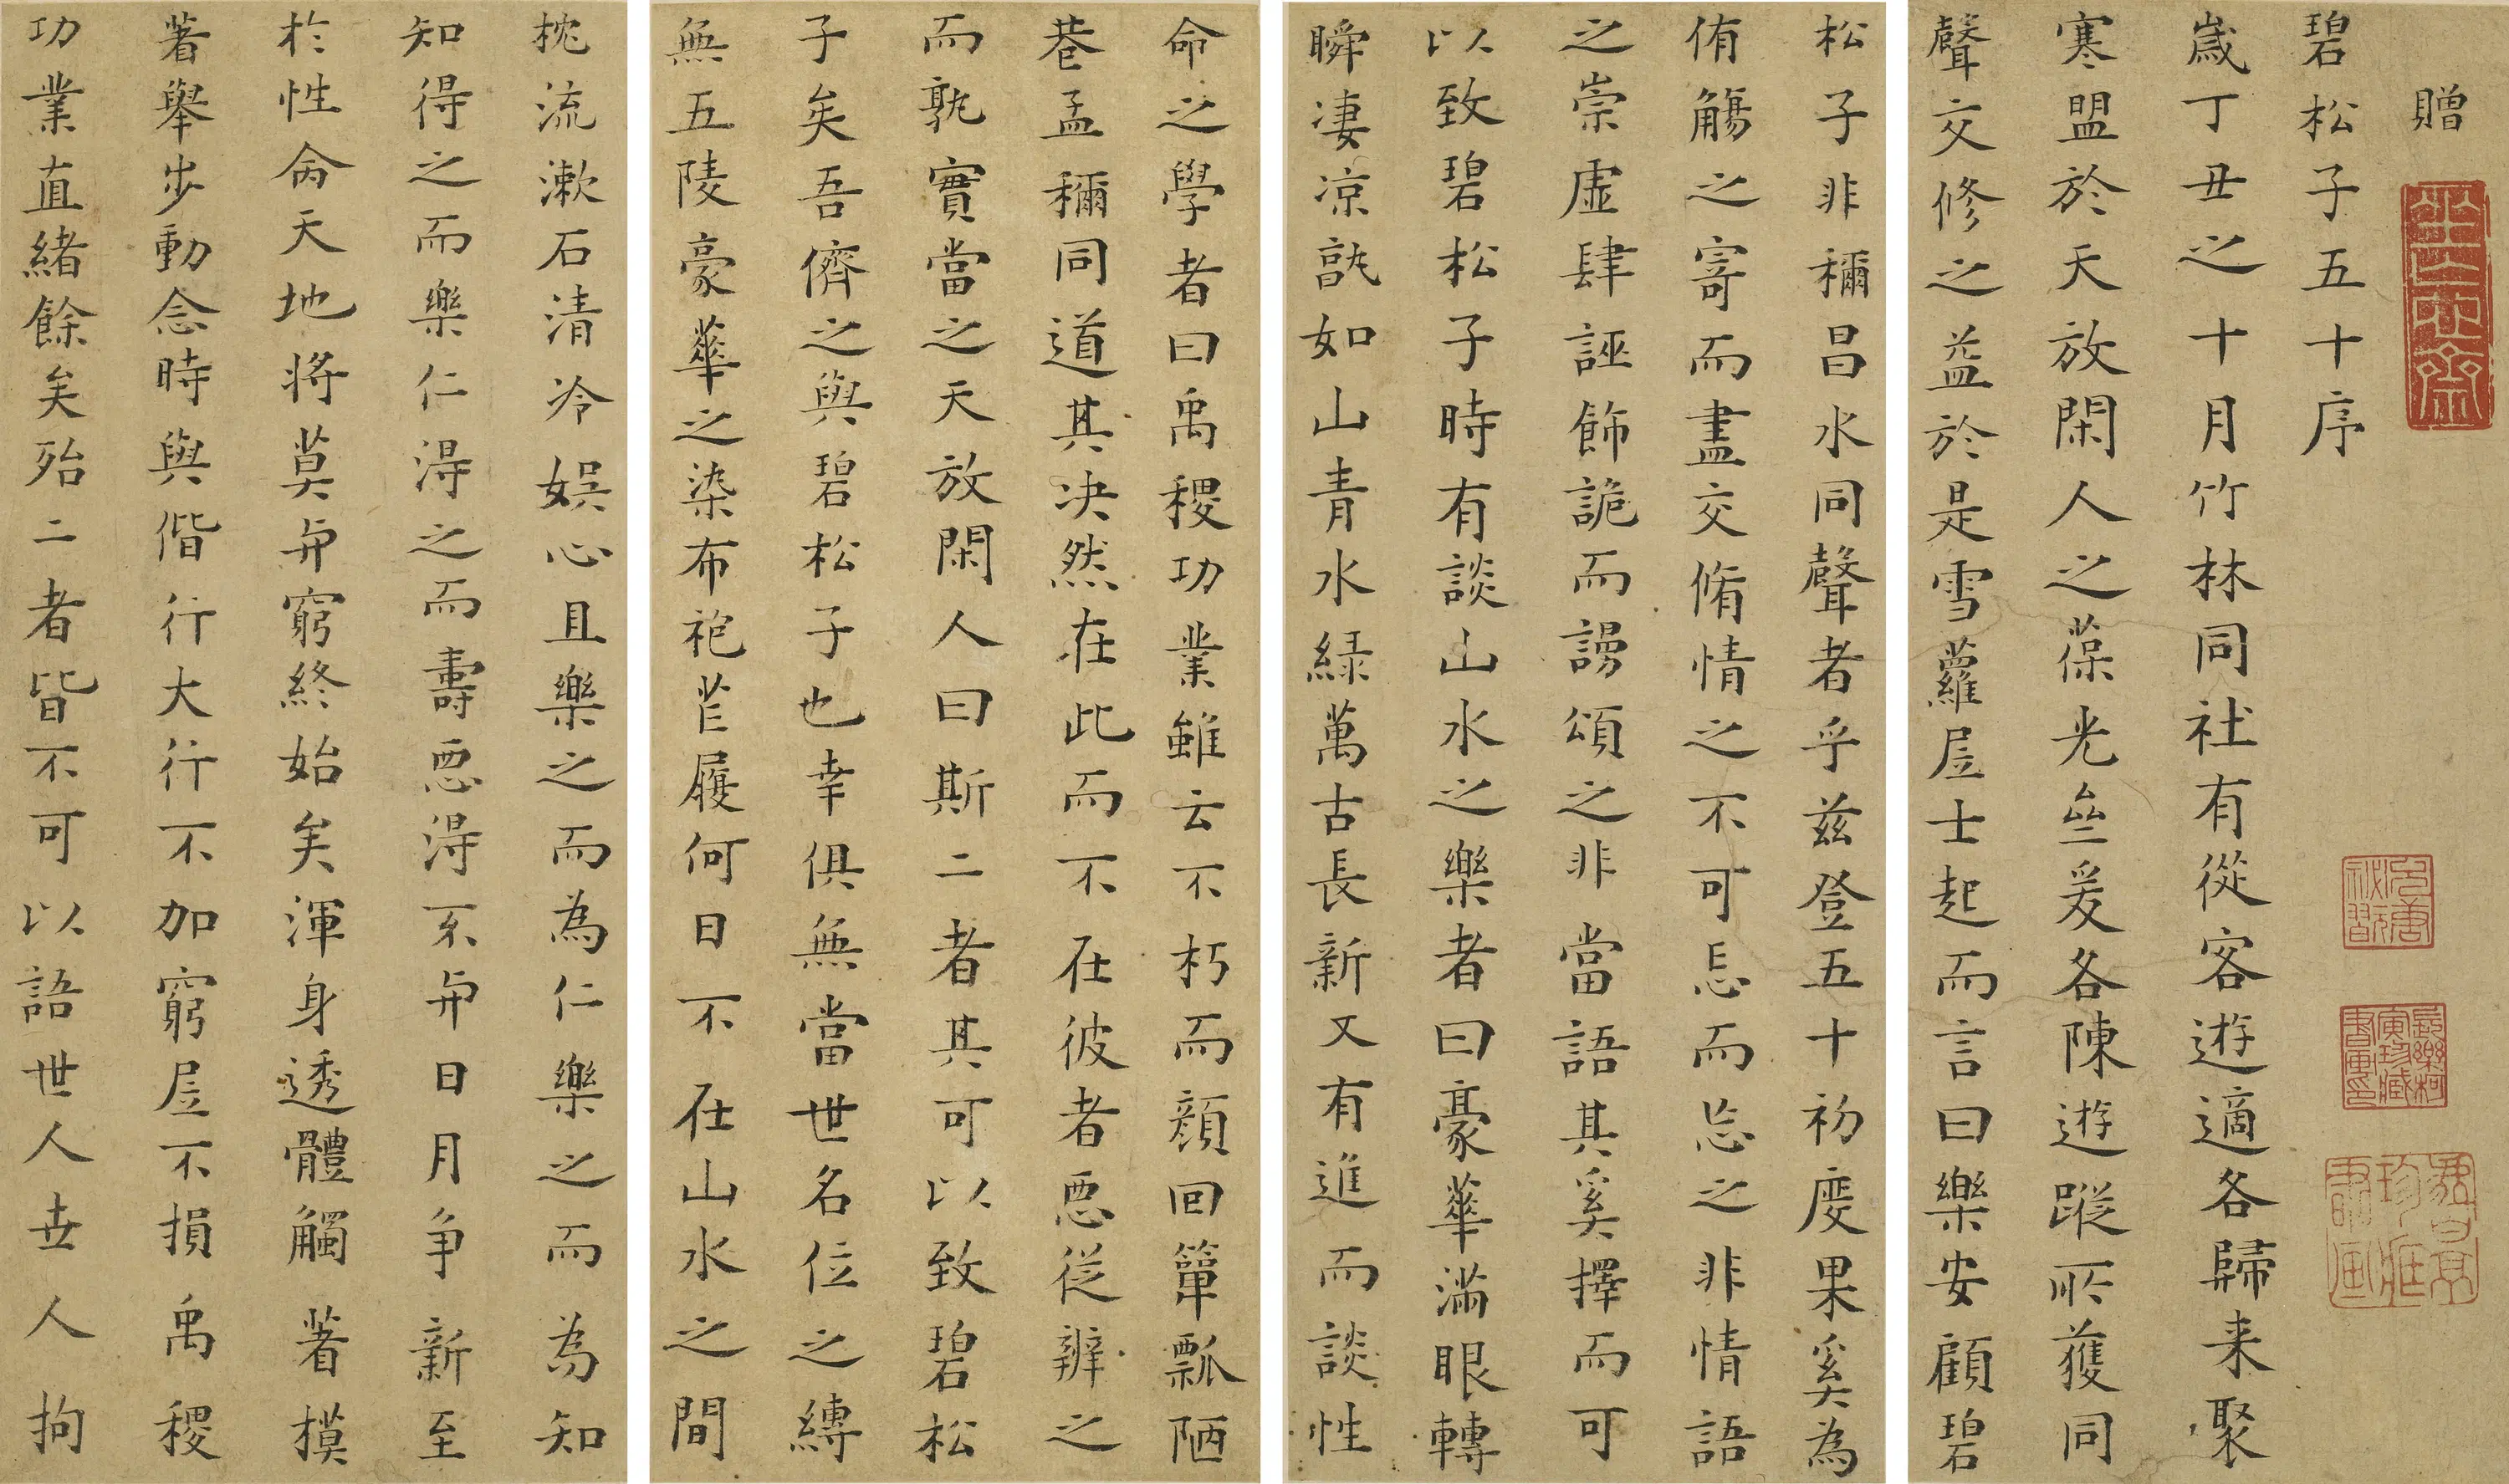 贈
碧松子五十序
歲丁丑之十月竹林同社有從客遊適各歸来聚
寒盟於天放閑人之葆光壘爰各陳遊蹤所獲同
聲交修之益於是雪蘿居士起而言曰樂安顧碧
松子非稱昌水同聲者乎兹登五十初度果奚為
侑觴之寄而盡交脩情之不可忘而忘之非情語
之崇虛肆誣飾詭而謗頌之非當語其奚擇而可
以致碧松子時有談山水之樂者曰豪華滿眼轉
瞬凄凉孰如山青水緑萬古長新又有進而談性
命之學者曰禹稷功業雖云不朽而顏回簞瓢陋
巷孟稱同道其决然在此而不在彼者惡從辨之
而孰實當之天放閑人曰斯二者其可以致碧松
子矣吾儕之與碧松子也幸俱無當世名位之縛
無五陵豪華之染布袍芒履何日不在山水之間
枕流漱石清冷娛心且樂之而為仁樂之而為知
知得之而樂仁淂之而壽惡淂不與日月争新至
於性命天地將莫與窮終始矣渾身透體觸著摸
著舉步動念時與偕行大行不加窮居不損禹稷
功業直緒餘矣殆二者皆不可以語世人世人拘